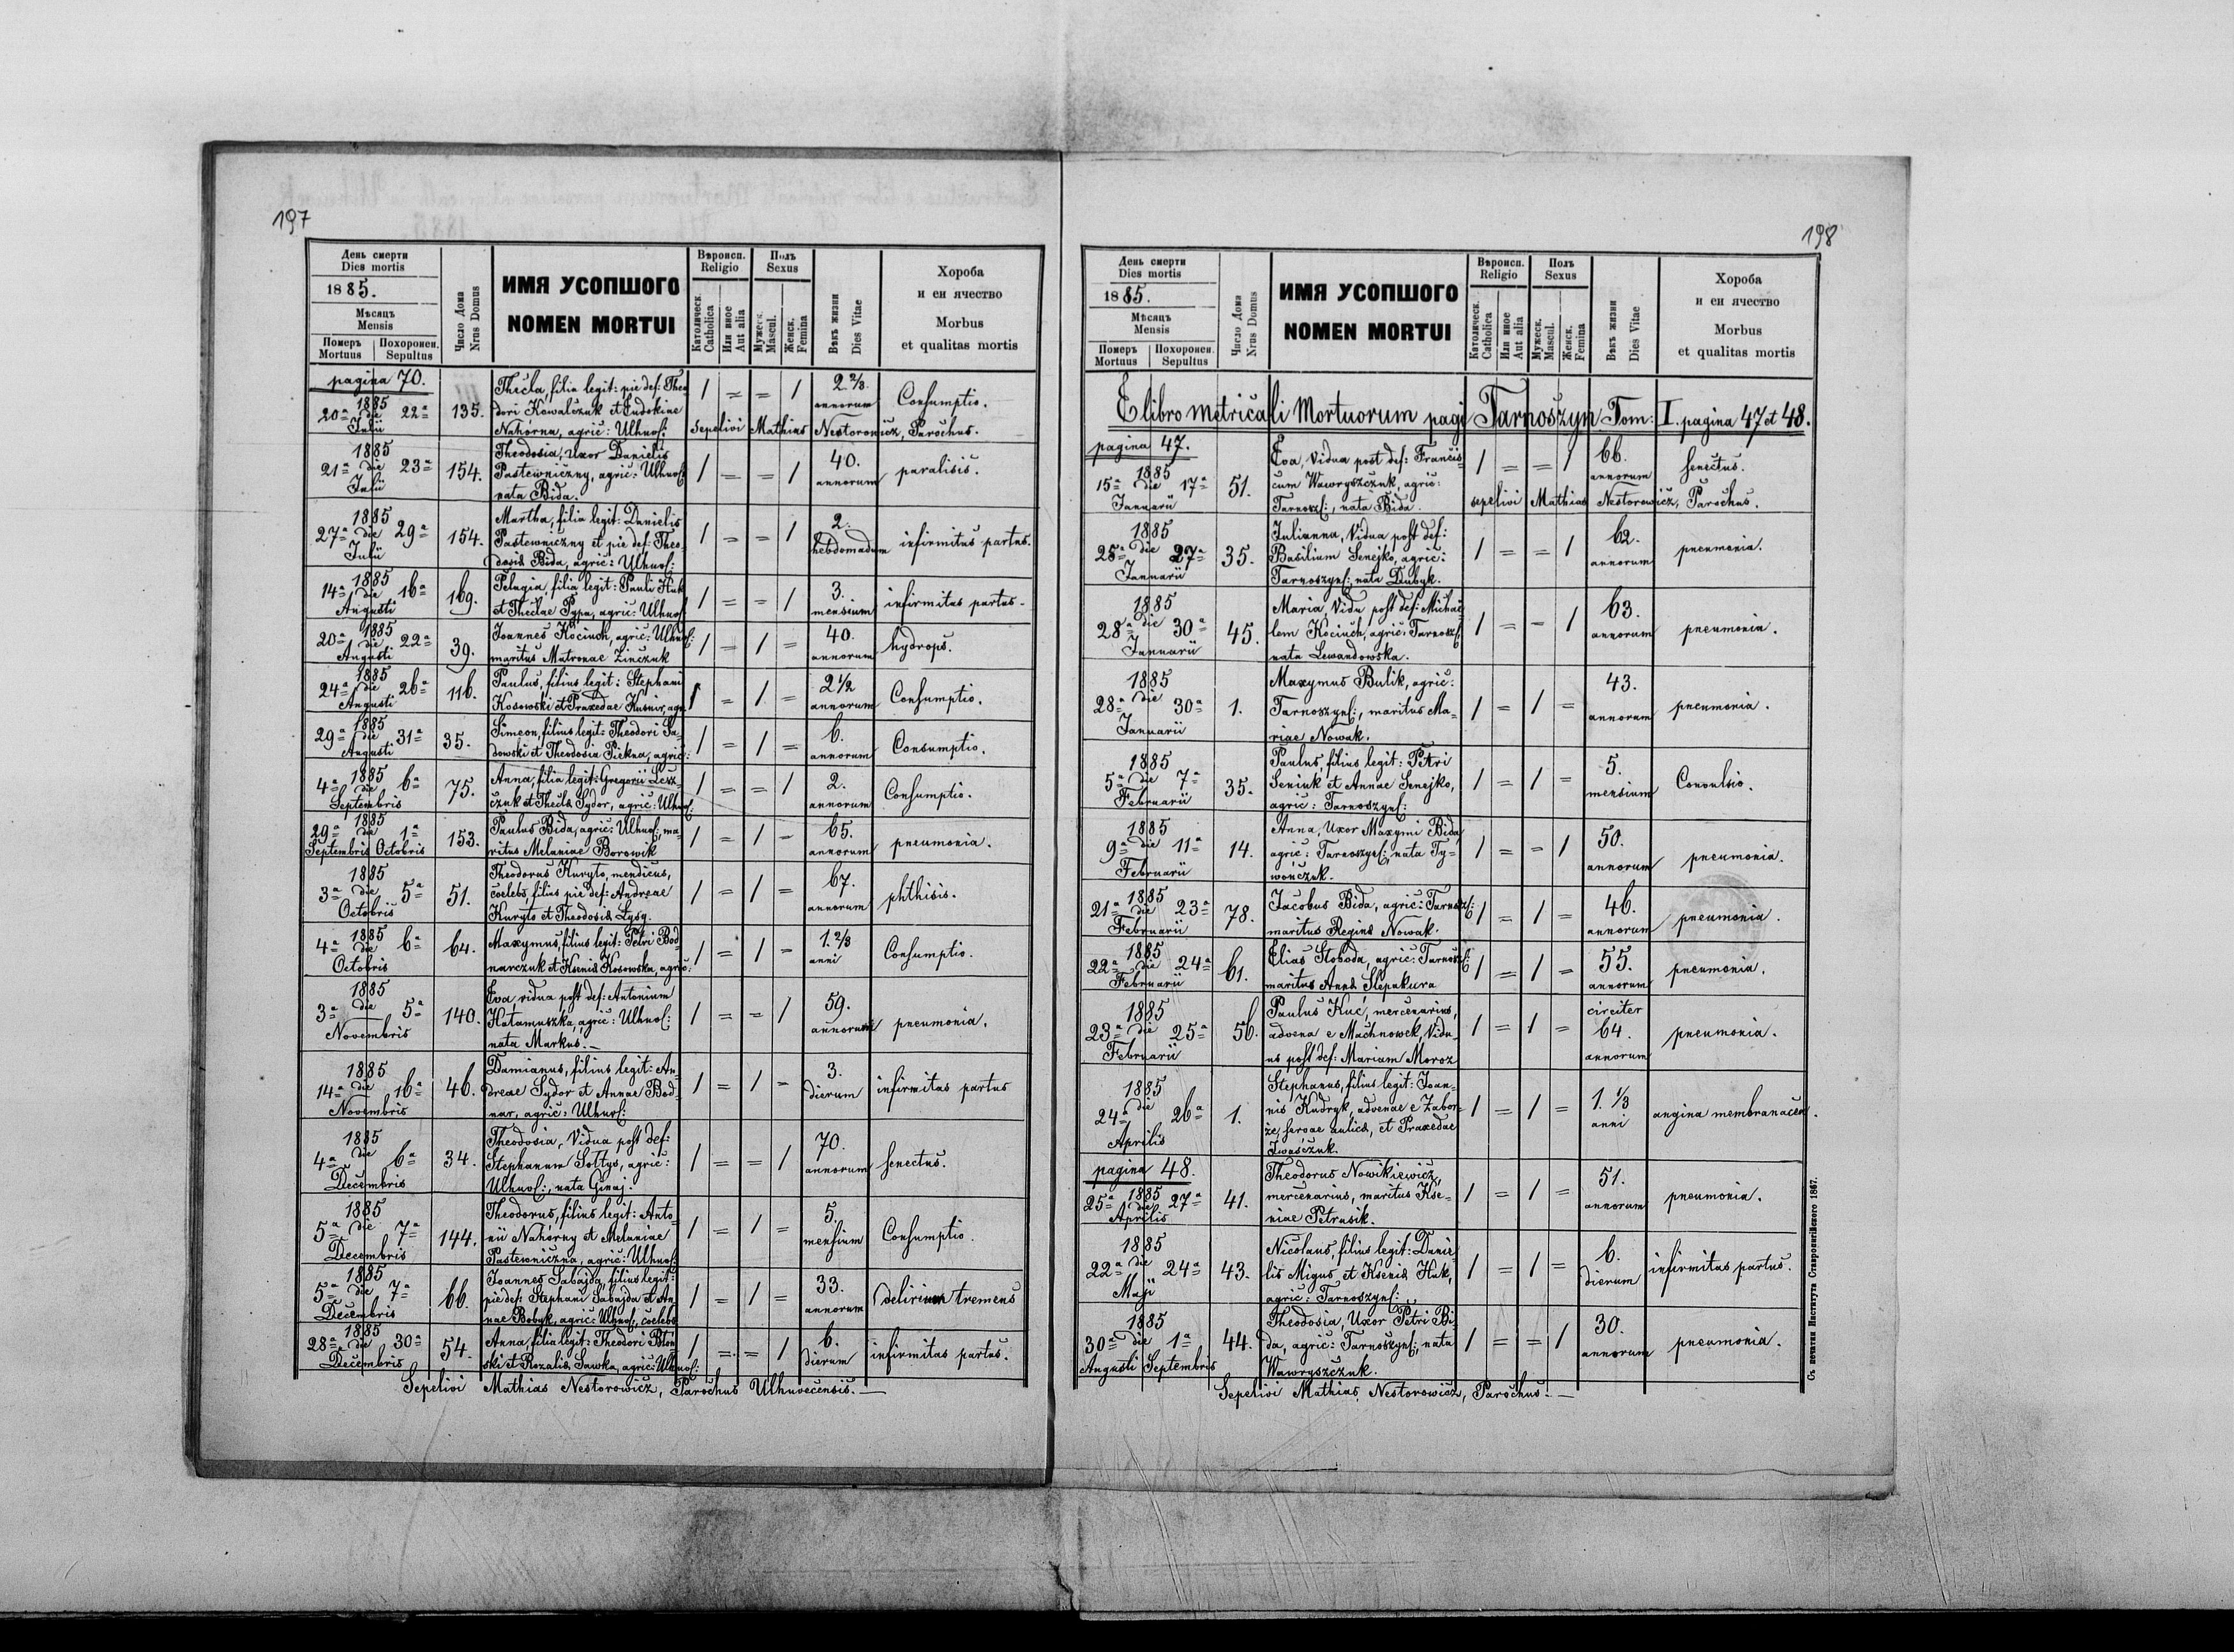 197
День смерти
Dies mortis
1885.
Мѣсяць
Mensis
Померъ Mortuus
Похоронен. Sepultus
Число Дома
Nrus Domus
ИМЯ УСОПШОГО
NOMEN MORTUI
Вѣроисп.
Religio
Католическ.
Catholica
Или иное
Aut alia
Полъ
Sexus
Мужеск.
Mascul.
Женск.
Femina
Вѣкъ жизни
Dies Vitae
Хороба
и еи ячество
Morbus
et qualitas mortis
pagina 70.
1885
20ª die 22ª
Julii
135.
Thecla, filia legit: pie def: Theo-
dori Kowalczuk et Eudokiae
Nahórna, agric: Ulhuof:
1 = = 1
2 2/3.
annorum
Consumptio.
Sepelivi Mathias Nestorowicz, Parochus.
1885
21ª die 23ª
Julii
154.
Theodosia, Uxor Danielis
Pastewniczny, agric: Ulhuof:
nata Bida.
1 = = 1
40.
annorum
paralisis.
1885
27ª die 29ª
Julii
154.
Martha, filia legit: Danielis
Pastewniczny et pie def: Theo-
dosia Bida, agric: Ulhuof:
1 = = 1
2.
hebdomadum
infirmitas partus.
1885
14ª die 16ª
Augusti
169.
Pelagia, filia legit: Pauli Huk
et Theclae Pypa, agric: Ulhuof:
1 = = 1
3.
mensium
infirmitas partus.
1885
20ª die 22ª
Augusti
39.
Joannes Kociuch, agric: Ulhuof:
maritus Matronae Zińczuk
1 = 1 =
40.
annorum
hydrops.
1885
24ª die 26ª
Augusti
116.
Paulus, filius legit: Stephani
Kosowski et Praxedae Kusnir, agr:
1 = 1 =
2 1/2
annorum
Consumptio.
1885
29ª die 31ª
Augusti
35.
Simeon, filius legit: Theodori Sa-
dowski et Theodosia Piekna, agric:
1 = 1 =
6.
annorum
Consumptio.
1885
4ª die 6ª
Septembris
75.
Anna, filia legit: Gregorii Lesz-
czuk et Thecla Sydor, agric: Ulhuof:
1 = = 1
2.
annorum
Consumptio.
1885
29ª die 1ª
Septembris Octobris
153.
Paulus Bida, agric: Ulhuof:, ma-
ritus Melaniae Borowik
1 = 1 =
65.
annorum
pneumonia.
1885
3ª die 5ª
Octobris
51.
Theodorus Kuryto, mendicus,
coelebs, filius pie def: Andreae
Kuryto et Theodosia Lysy.
1 = 1 =
67.
annorum
phthisis.
1885
4ª die 6ª
Octobris
64.
Maxymus, filius legit: Petri Bod-
narczuk et Ksenia Kosowska, agric:
1 = 1 =
1. 2/3
anni
Consumptio.
1885
3ª die 5ª
Novembris
140.
Eva, vidua post def: Antonium
Hatamuszka, agric: Ulhuof:
nata Markus.
1 = = 1
59.
annorum
pneumonia.
1885
14ª die 16ª
Novembris
46.
Damianus, filius legit: An-
dreae Sydor et Annae Bod-
nar, agric: Ulhuof:
1 = 1 =
3.
dierum
infirmitas partus
1885
4ª die 6ª
Decembris
34.
Theodosia, Vidua post def:
Stephanum Soltys, agric:
Ulhuof:, nata Ginaj.
1 = = 1
70.
annorum
senectus.
1885
5ª die 7ª
Decembris
144.
Theodorus, filius legit: Anto-
nii Nahórny et Melaniae
Pastewniczna, agric: Ulhuof:
1 = 1 =
5.
mensium
Consumptio.
1885
5ª die 7ª
Decembris
66.
Joannes Sabajda, filius legit:
pie def: Stephani Sabajda et An-
nae Bobyk, agric: Ulhuof:, coelebs
1 = 1 =
33.
annorum
delirium tremens
1885
28ª die 30ª
Decembris
54.
Anna, filia legit: Theodori Błoń-
ski et Rozalia Sawka, agric: Ulhuof:
1 = = 1
6.
dierum
infirmitas partus.
Sepelivi Mathias Nestorowicz, Parochus Ulhuvecensis.
198
День смерти
Dies mortis
1885.
Мѣсяць
Mensis
Померъ Mortuus
Похоронен. Sepultus
Число Дома
Nrus Domus
ИМЯ УСОПШОГО
NOMEN MORTUI
Вѣроисп.
Religio
Католическ.
Catholica
Или иное
Aut alia
Полъ
Sexus
Мужеск.
Mascul.
Женск.
Femina
Вѣкъ жизни
Dies Vitae
Хороба
и еи ячество
Morbus
et qualitas mortis
E libro metricali Mortuorum pagi Tarnoszyn Tom: I. pagina 47 et 48.
pagina 47.
1885
15ª die 17ª
Januarii
51.
Eva, Vidua post def: Francis-
cum Wawryszczuk, agric:
Tarnosz:, nata Bida.
1 = = 1
66.
annorum
senectus.
sepelivi Mathias Nestorowicz, Parochus.
1885
25ª die 27ª
Januarii
35.
Julianna, Vidua post def:
Basilium Senejko, agric:
Tarnoszyns:, nata Dubyk.
1 = = 1
62.
annorum
pneumonia.
1885
28ª die 30ª
Januarii
45.
Maria, Vidu post def: Michaë-
lem Kociuch, agric: Tarnosz:
nata Lewandowska.
1 = = 1
63.
annorum
pneumonia.
1885
28ª die 30ª
Januarii
1.
Maxymus Bulik, agric:
Tarnoszyns:, maritus Ma-
riae Nowak.
1 = 1 =
43.
annorum
pneumonia.
1885
5ª die 7ª
Februarii
35.
Paulus, filius legit: Petri
Seniuk et Annae Senejko,
agric: Tarnoszyns:
1 = 1 =
5.
mensium
Convulsio.
1885
9ª die 11ª
Februarii
14.
Anna, Uxor Maxymi Bida,
agric: Tarnoszyns:, nata Ty-
wończuk.
1 = = 1
50.
annorum
pneumonia.
1885
21ª die 23ª
Februarii
78.
Jacobus Bida, agric: Tarnosz:
maritus Regina Nowak.
1 = 1 =
46.
annorum
pneumonia.
1885
22ª die 24ª
Februarii
61.
Elias Słoboda, agric: Tarnosz:
maritus Anna Slepakura
1 = 1 =
55.
annorum
pneumonia.
1885
23ª die 25ª
Februarii
56.
Paulus Kuć, mercenarius,
advena e Machnowek, Vidu-
us post def: Mariam Moroz
1 = 1 =
circiter
64.
annorum
pneumonia.
1885
24ª die 26ª
Aprilis
1.
Stephanus, filius legit: Joan-
nis Kudryk, advenae e Zabor-
że, servae aulica, et Praxedae
Iwaśczuk.
1 = 1 =
1. 1/3
anni
angina membranacea.
pagina 48.
1885
25ª die 27ª
Aprilis
41.
Theodorus Nowikiewicz,
mercenarius, maritus Kse-
niae Petrusik.
1 = 1 =
51.
annorum
pneumonia.
1885
22ª die 24ª
Maji
43.
Nicolaus, filius legit: Danie-
lis Migus et Ksenia Huk,
agric: Tarnoszyns:
1 = 1 =
6.
dierum
infirmitas partus.
1885
30ª die 1ª
Augusti Septembris
44.
Theodosia, Uxor Petri Bi-
da, agric: Tarnoszyns:, nata
Wawryszczuk.
1 = = 1
30.
annorum
pneumonia.
Sepelivi Mathias Nestorowicz, Parochus.
Съ печатни Института Ставропигійского 1867.